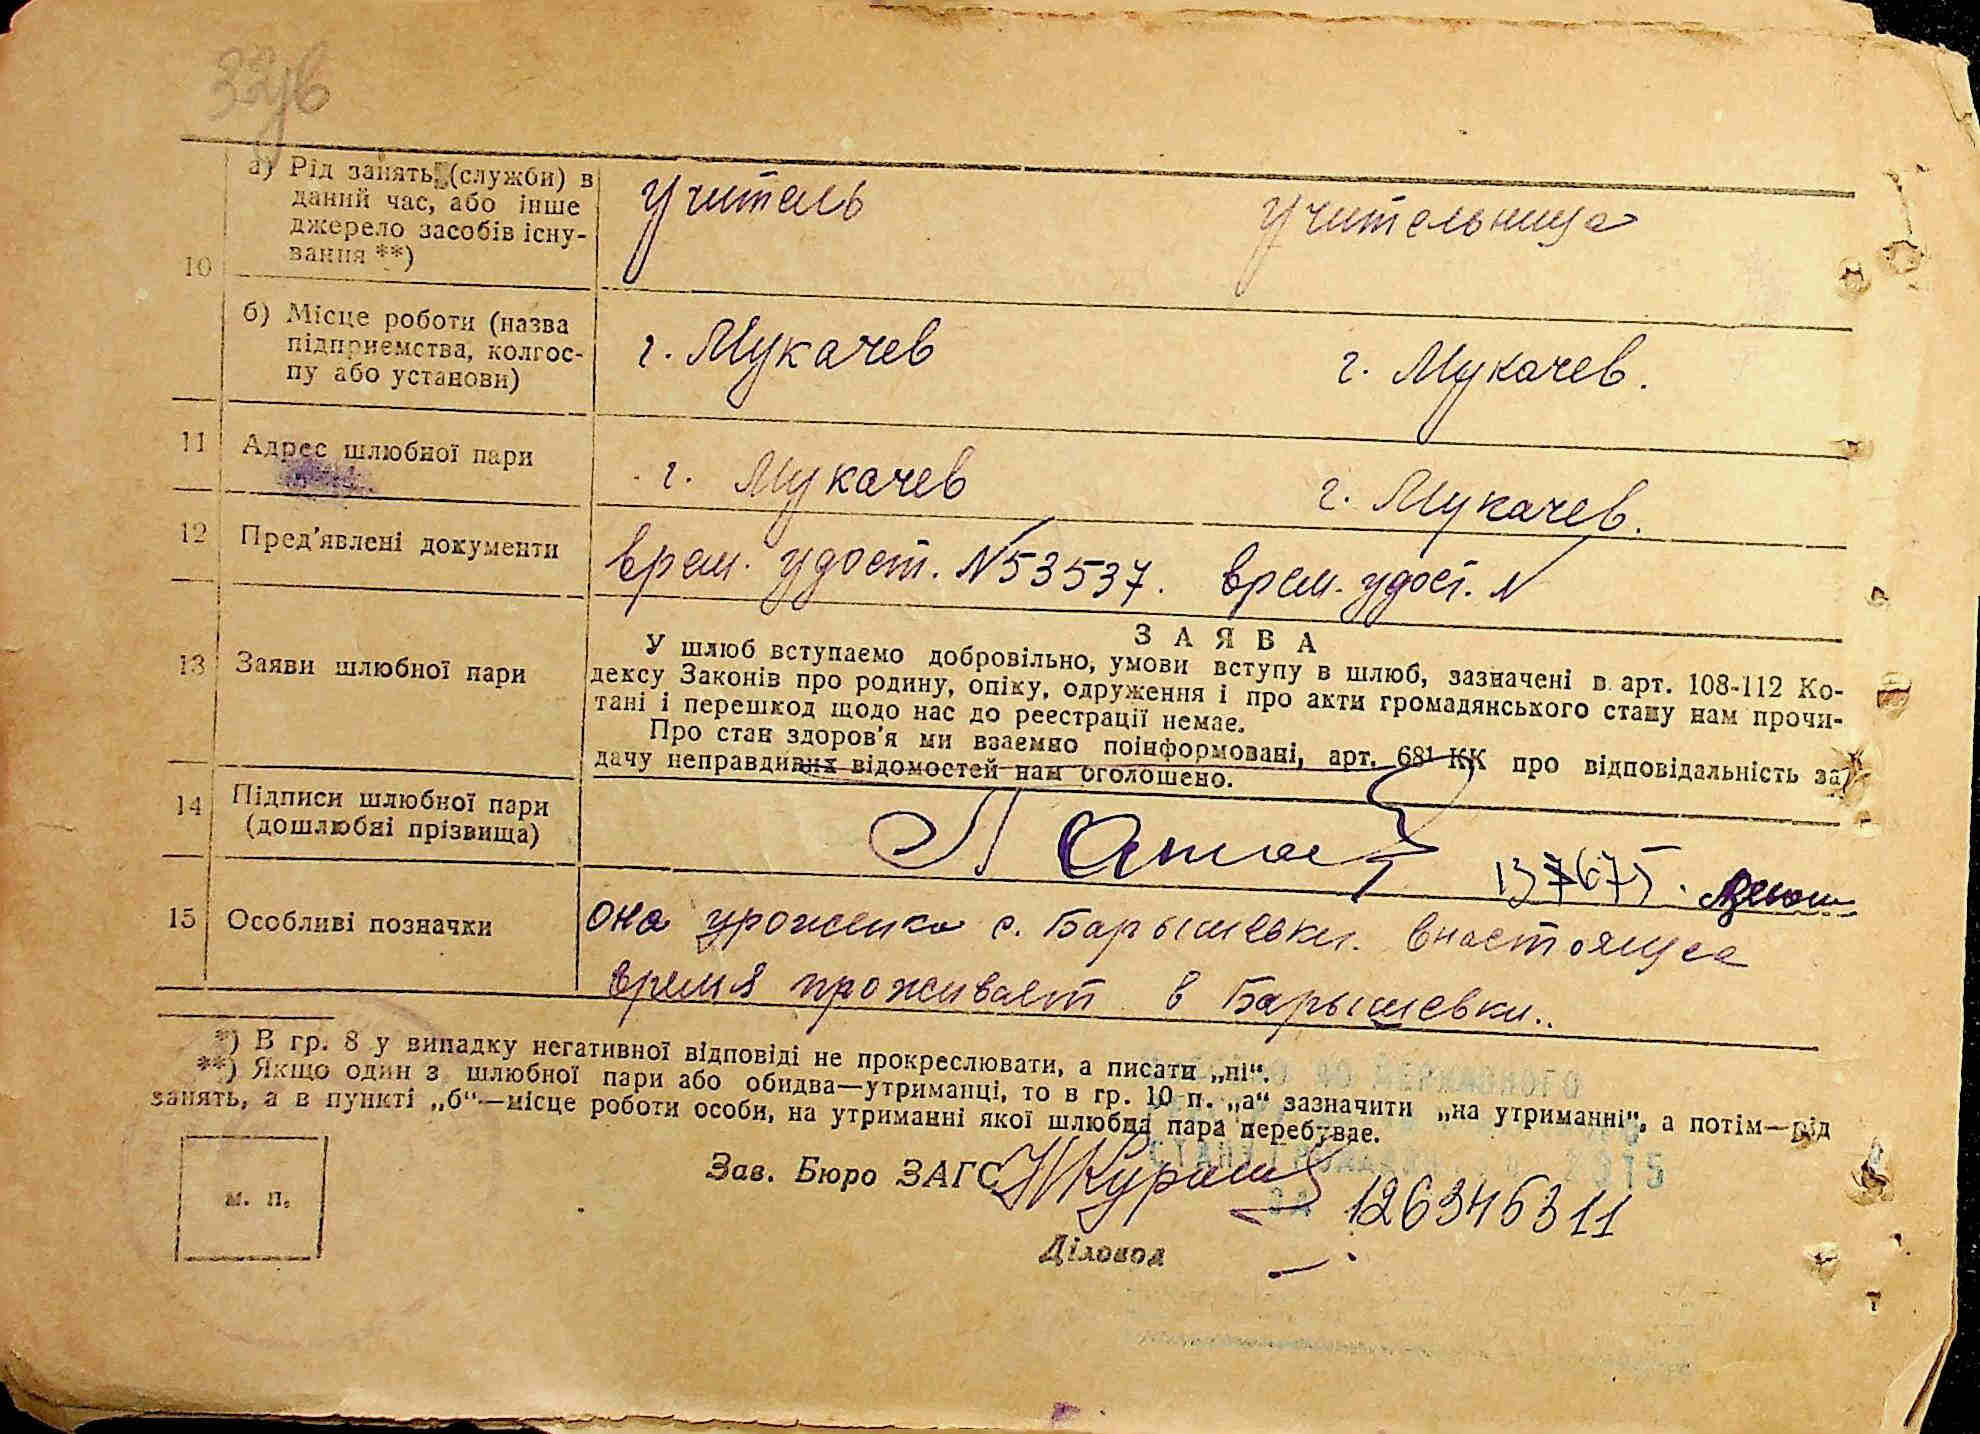 10
а) Рід занять (служби) в
даний час, або інше
джерело засобів існу-
вання **)
учитель учительница
б) Місце роботи (назва
підприємства, колгос-
пу або установи)
г. Мукачев г. Мукачев.
11 Адрес шлюбної пари
г. Мукачев г. Мукачев.
12 Пред'явлені документи
врем. удост. №53537. врем. удост. №
13 Заяви шлюбної пари
ЗАЯВА
У шлюб вступаємо добровільно, умови вступу в шлюб, зазначені в арт. 108-112 Ко-
дексу Законів про родину, опіку, одруження і про акти громадянського стану нам прочи-
тані і перешкод щодо нас до реєстрації немає.
Про стан здоров'я ми взаємно поінформовані, арт. 68¹ КК про відповідальність за
дачу неправдивих відомостей нам оголошено.
14 Підписи шлюбної пари
(дошлюбні прізвища)
137675.
15 Особливі позначки
она уроженка с. Барышевки. внастоящее
время проживает в Барышевки..
*) В гр. 8 у випадку негативної відповіді не прокреслювати, а писати „ні“.
**) Якщо один з шлюбної пари або обидва—утриманці, то в гр. 10 п. „а“ зазначити „на утриманні“, а потім—рід
занять, а в пункті „б“—місце роботи особи, на утриманні якої шлюбна пара перебуває.
м. п.
Зав. Бюро ЗАГС
1263463 11
Діловод